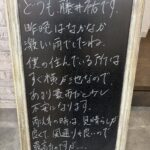 どうも藤井裕です。
昨晩はなかなか
激しい雨でしたね。
僕の住んでいる所は
すぐ横が池なので
あまり豪雨だとケレ
不安になります。
雨以外の時は、見晴らしが
良くて、風通りも良いので
最高なんですが…